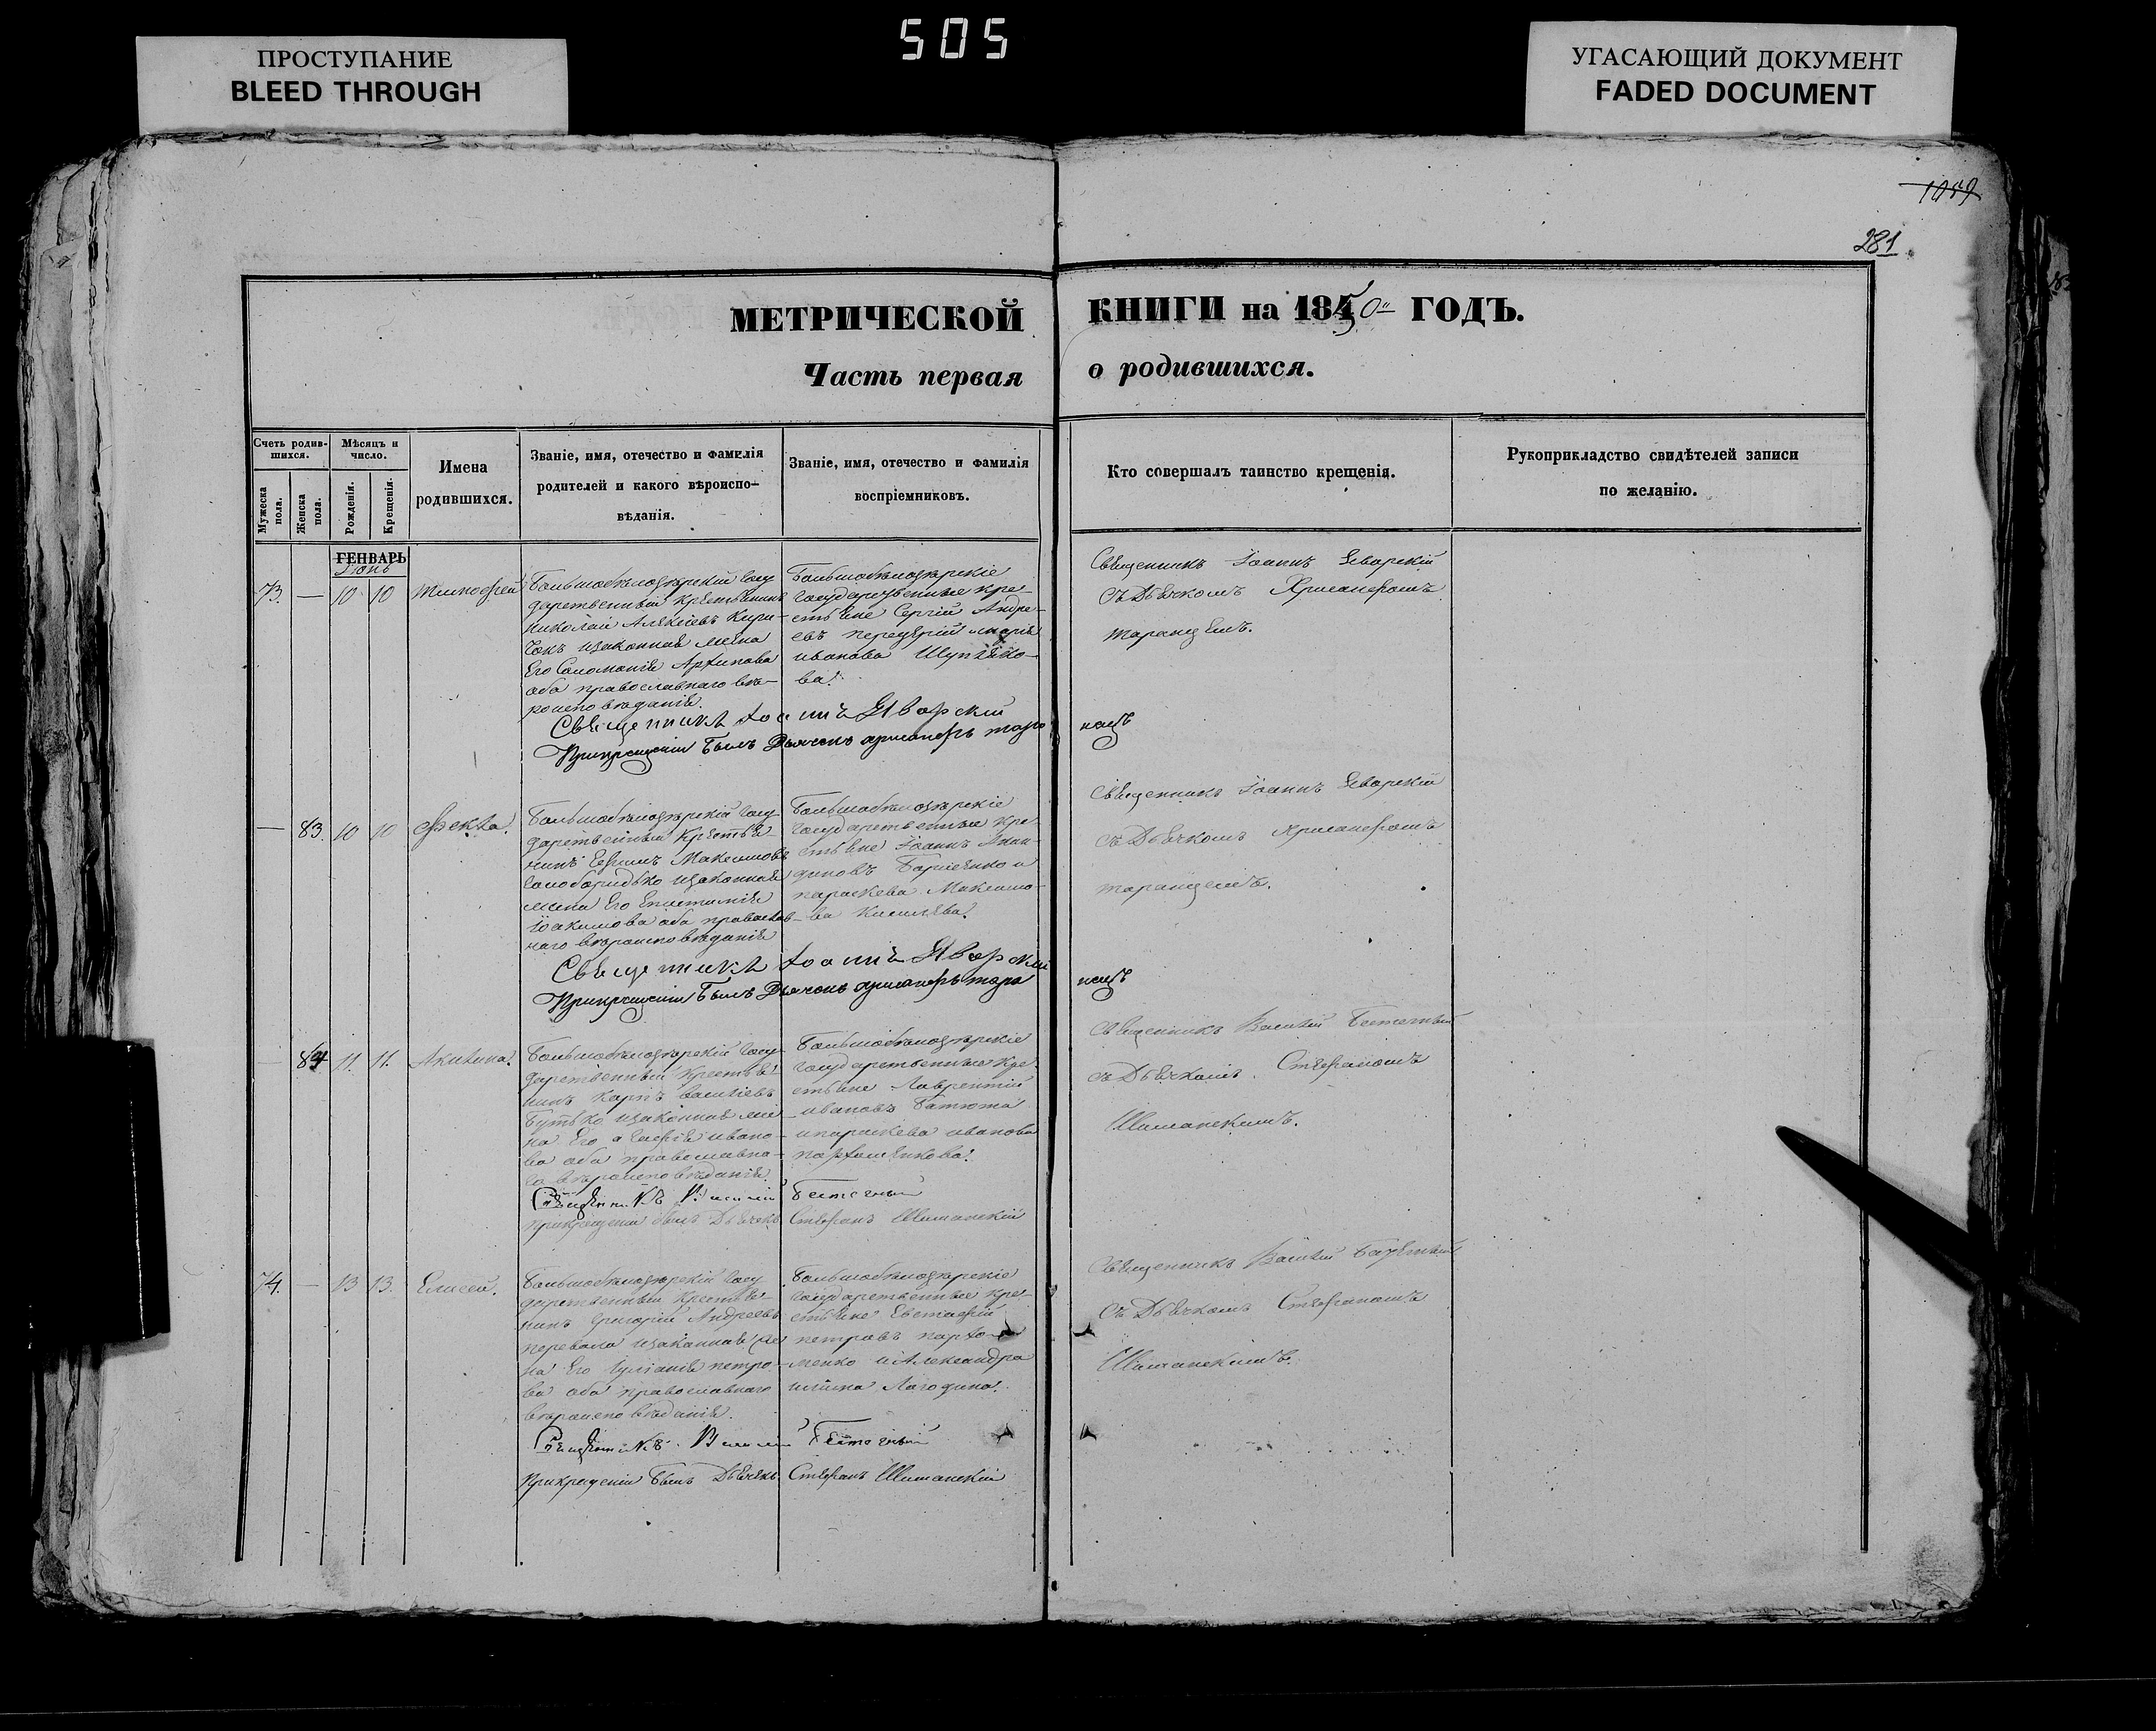 505
ПРОСТУПАНИЕ
BLEED THROUGH
УГАСАЮЩИЙ ДОКУМЕНТ
FADED DOCUMENT
1059
281
МЕТРИЧЕСКОЙ КНИГИ на 1850 ГОДЪ.
Часть первая о родившихся.
Счетъ родив-
шихся.
Мужеска пола.
Женска пола.
Мѣсяцъ и число.
Рожденія.
Крещенія.
Имена
родившихся.
Званіе, имя, отечество и фамилія
родителей и какого вѣроиспо-
вѣданія.
Званіе, имя, отечество и фамилія
воспріемниковъ.
Кто совершалъ таинство крещенія.
Рукоприкладство свидѣтелей записи
по желанію.
ГЕНВАРЬ
Іюнь
73. — 10 10 Тимофей
Большобѣлозѣрскій Госу
дарственный Крестьянинъ
Николай Алексіевъ Кири-
Его Соломонія Архипова
оба православнаго вѣ-
роисповѣданія.
Большобѣлозѣрскіе
государственные кре-
стьяне Сергій Андре-
иванова
ва.
Священникъ Іоаннъ Яворскій
съ Дьячкомъ Хрисанфомъ
таранцемъ.
Священникъ Іоаннъ Яворскій
Прикрещеніи былъ Дьячокъ Хрисанфъ таранецъ
— 83. 10 10 Фекла.
Большобѣлозѣрскій Госу
дарственный Крестья
нинъ Ефимъ Максимовъ
жена Его Епистимія
Іоакимова оба православ-
наго вѣроисповѣданія
Большобѣлозѣрскіе
Государственные кре-
стьяне Іоаннъ
параскева Максимо-
ва
Священникъ Іоаннъ Яворскій
съ Дьячкомъ Хрисанфомъ
таранцемъ.
Священникъ Іоаннъ Яворскій
Прикрещеніи былъ Дьячокъ Хрисанфъ таранецъ
— 84 11. 11. Акилина.
Большобѣлозѣрскій Госу-
дарственный Крестья-
нинъ Карпъ Василіевъ
Бутько изаконная же
на Его Агафія ивано-
ва оба православна-
го вѣроисповѣданія.
Большобѣлозѣрскіе
Государственные кре-
стьяне Лаврентій
ивановъ Батюта
ипараскева иванова
пархоменкова.
Священникъ Василій
съ Дьячкомъ Стефаномъ
Шиманскимъ.
Священникъ Василій
прикрещеніи былъ Дьячекъ Стефанъ Шиманскій
74. — 13 13. Елисей.
Большобѣлозѣрскій Госу
дарственный Крестья-
нинъ Григорій Андреевъ
перевала изаконная же
на Его Іуліанія петро-
ва оба православнаго
вѣроисповѣданія.
Большобѣлозѣрскіе
Государственные кре-
стьяне Евстафій
петровъ пархо-
менко иАлександра
Священникъ Василій
съ Дьячкомъ Стефаномъ
Шиманскимъ.
Священникъ Василій
Прикрещеніи былъ Дьячекъ Стефанъ Шиманскій